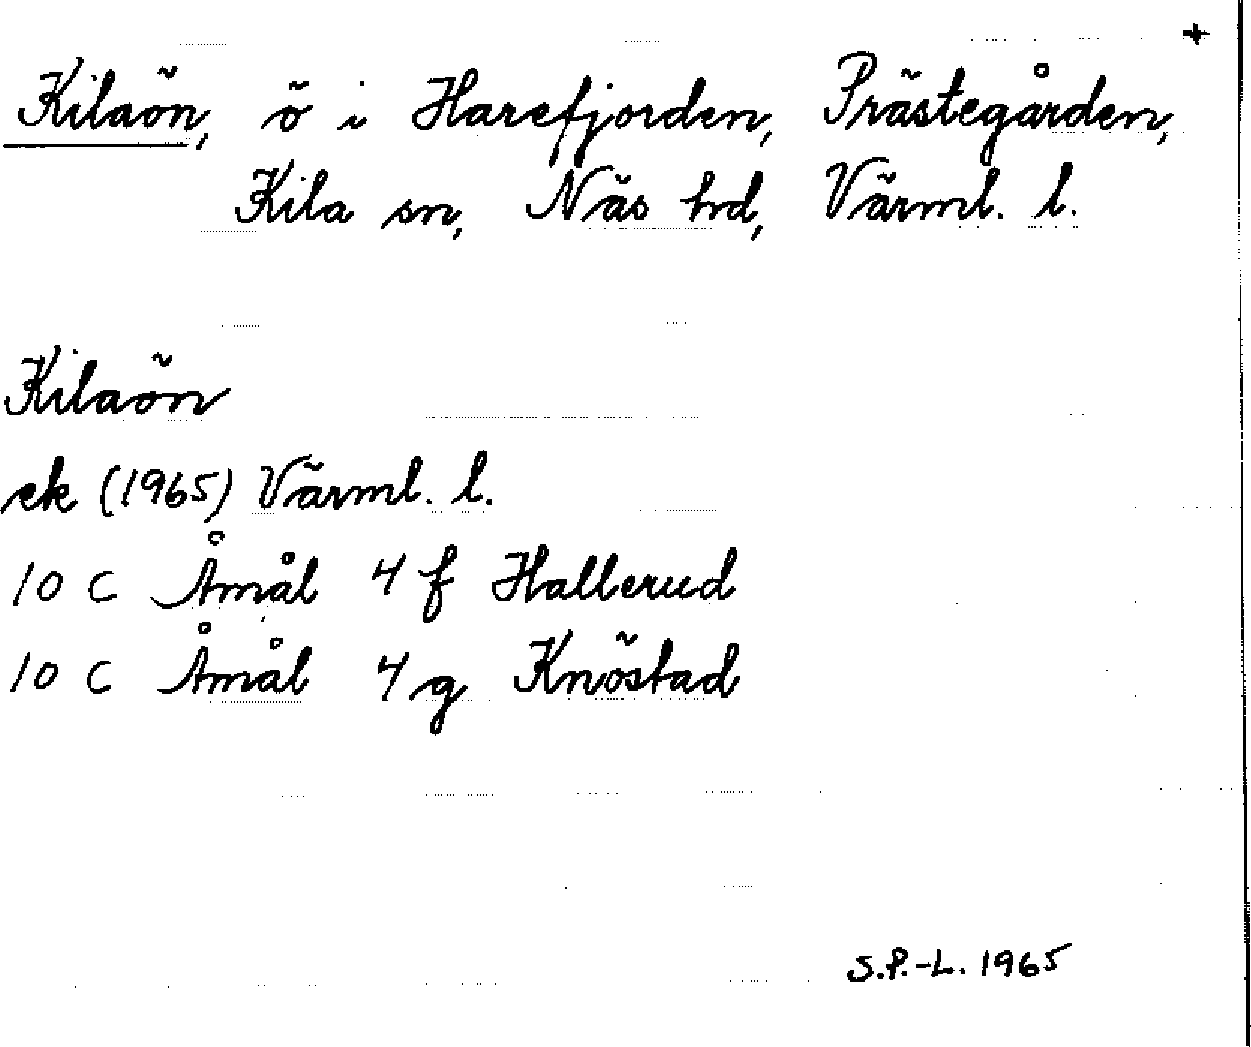 +
Kilaön, ö i Harefjorden, Prästegården,
Kila sn, Näs hd, Värml. l.
Kilaön
ek (1965) Värml. l.
10 C Åmål 4 f Hallerud
10 C Åmål 4 g Knöstad
S.P.-L. 1965